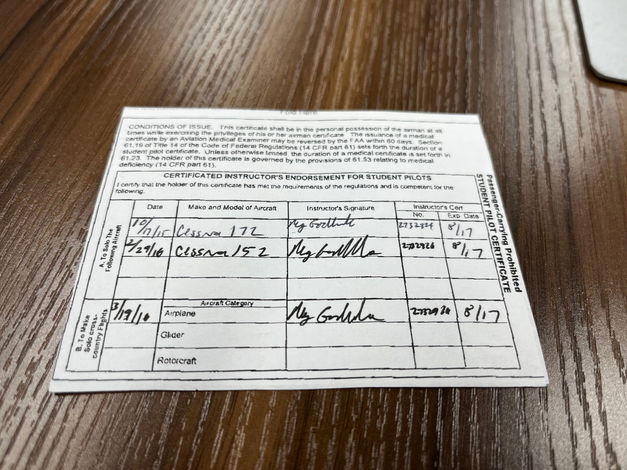 Fold Here
CONDITIONS OF ISSUE. This certificate shall be in the personal possession of the airman at all
times while exercising the privileges of his or her airman certificate. The issuance of a medical
certificate by an Aviation Medical Examiner may be reversed by the FAA within 60 days. Section
61.19 of Title 14 of the Code of Federal Regulations (14 CFR part 61) sets forth the duration of a
student pilot certificate. Unless otherwise limited, the duration of a medical certificate is set forth in
61.23. The holder of this certificate is governed by the provisions of 61.53 relating to medical
deficiency (14 CFR part 61).
CERTIFICATED INSTRUCTOR'S ENDORSEMENT FOR STUDENT PILOTS
I certify that the holder of this certificate has met the requirements of the regulations and is competent for the
following.
Date
Make and Model of Aircraft
Instructor's Signature
Instructor's Cert
No.
Exp. Date
A. To Solo The
Following Aircraft
Cessna 172
8/17
2/29/16
Cessna 152
8/17
B. To Make
Solo cross-
country Flights
Aircraft Category
3/19/16
Airplane
8/17
Glider
Rotorcraft
Passenger-Carrying Prohibited
STUDENT PILOT CERTIFICATE